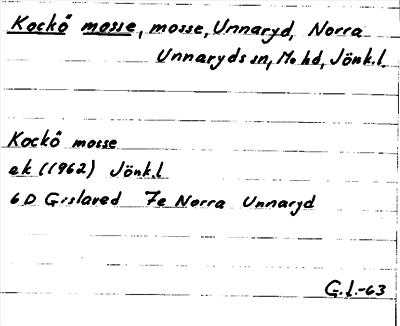 Kockö mosse, mosse, Unnaryd, Norra
Unnaryds sn, Mo hd, Jönk.l.
Kockö mosse
ek (1962) Jönk.l
6D Gislaved 7e Norra Unnaryd
G.L.-63